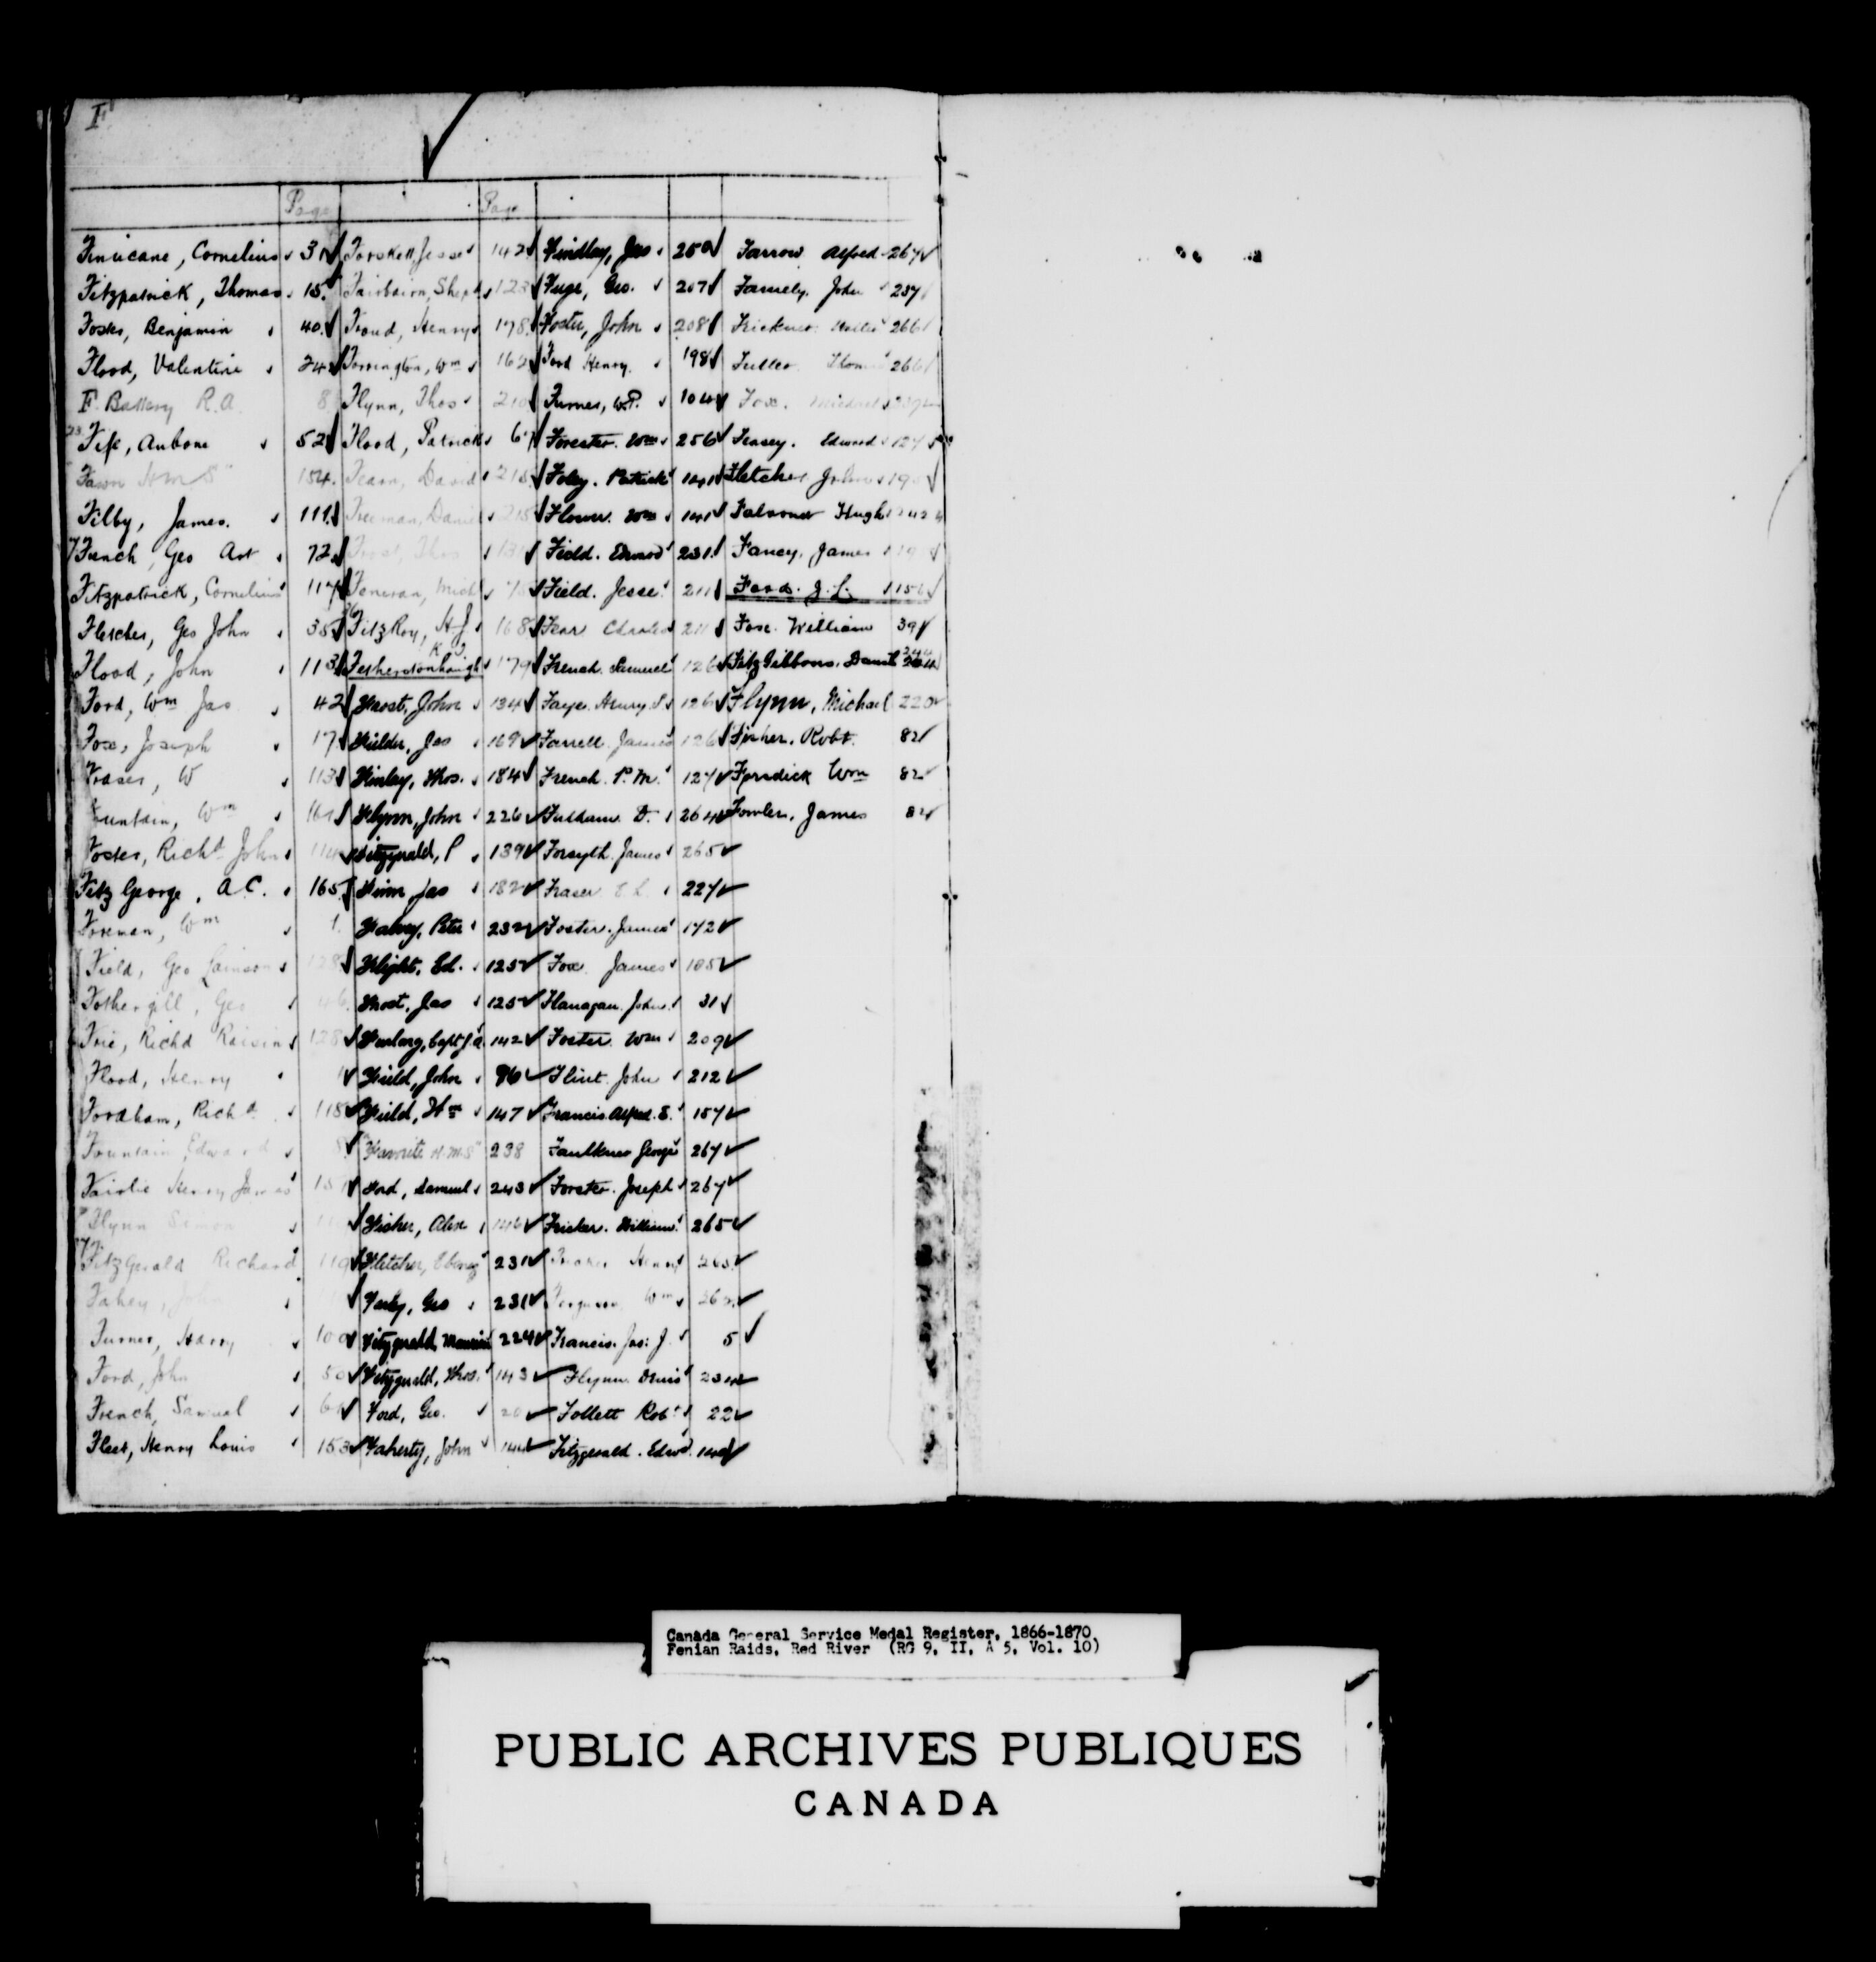 F
Page
Finucane, Cornelius 31
Fitzpatrick, Thomas 15
Foster, Benjamin 40
Flood, Valentine 24
F. Battery R.A. 8
Fife, Aubone 52
Fawn HMS 154
Filby, James. 111
Funch, Geo Art 72
Fitzpatrick, Cornelius 117
Fletcher, Geo John 35
Flood, John 113
Ford, Wm Jas 42
Fox, Joseph 17
Fraser, W 113
Fountain, Wm
Foster, Richd John 114
Fitz George, A.C. 165
Foreman, Wm 1
Field, Geo 128
Fothergill, Geo
Frie, Richd 128
Flood, Henry
Fordham, Richd 118
Fountain, Edward 8
Fairlie Henry James
Flynn Simon
FitzGerald Richard 119
Fahey, John
Furner, Harry 100
Ford, John 50
French, Samual
Fleet, Henry Louis 153
Page
Forskett, Jesse 142
Fairbairn, Sheph 123
Froud, Henry 178
Torrington, Wm 162
Flynn, Thos 210
Flood, Patrick 67
Fearn, David 215
Freeman, Daniel 215
Frost, Thos
Foneran, Mich
FitzRoy, H.J. 168
Fetherstonhaugh K J 179
Frost, John 134
Fielder, Jas 169
Finlay, Thos. 184
Flynn, John 226
Fitzgerald, P 139
Finn Jas 182
Fahey, Peter 232
Flight, Ed. 125
Frost, Jas 125
Furlong, Capt J.A. 142
Field, John 96
Field, Wm 147
Favourite H.M.S 238
Ford, Samuel 243
Fisher, Alex 146
Fletcher, Ebenez 231
Furby, Geo 231
Fitzgerald, Maurice 224
Fitzgerald, Thos. 143
Ford, Geo. 20
Faherty, John 144
Findlay, Jas 250
Fuge, Geo. 207
Foster, John 208
Ford Henry. 198
Furnes, W.P. 104
Forester. Wm 256
Foley. Patrick 141
Flower. Wm 141
Field. Edward 231
Field. Jesse 211
Fear Charles 211
French. Samuel 126
Faye. Henry S. 126
Farrell. James 126
French. P.M. 127
Fulham. D. 264
Forsyth. James 265
Fraser 227
Foster. James 172
Fox. James 105
Flanagan. John. 31
Foster. Wm 209
Flint. John 212
Francis. Alfred. E. 157
Faulkner George 267
Forster. Joseph 267
Fricker. William. 265
Henry 265
Ferguson Wm
Francis. Jas. J. 5
Flynn. Denis 234
Follett Robt 22
Fitzgerald. Edwd. 140
Farrow Alfred 267
Famely. John 237
Frickner. 266
Fuller. Thomas 266
Fox. Michael
Feasey. Edward 127
Fletcher John 190
Falconer Hugh 242
Fancy. James
Ford. J. L. 156
Fox. William 39
FitzGibbons. Daniel 244
Flynn, Michael 220
Fisher. Robt. 82
Fosdick Wm 82
Fowler. James 82
Canada General Service Medal Register, 1866-1870,
Fenian Raids, Red River (RG 9, II, A 5, Vol. 10)
PUBLIC ARCHIVES PUBLIQUES
CANADA